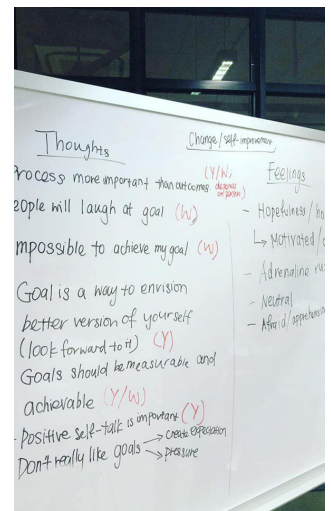 Change/self-improvement
Thoughts
rocess more important than outcomes (Y/W, depends on person)
eople will laugh at goal (W)
mpossible to achieve my goal (W)
Goal is a way to envision
better version of yourself
(look forward to it) (Y)
Goals should be measurable and
achievable (Y/W)
- Positive self-talk is important (Y)
Don't really like goals → create expectation
→ pressure
Feelings
- Hopefulness/ha
↳ Motivated/
- Adrenaline rus
- Neutral
- Afraid/apprehension